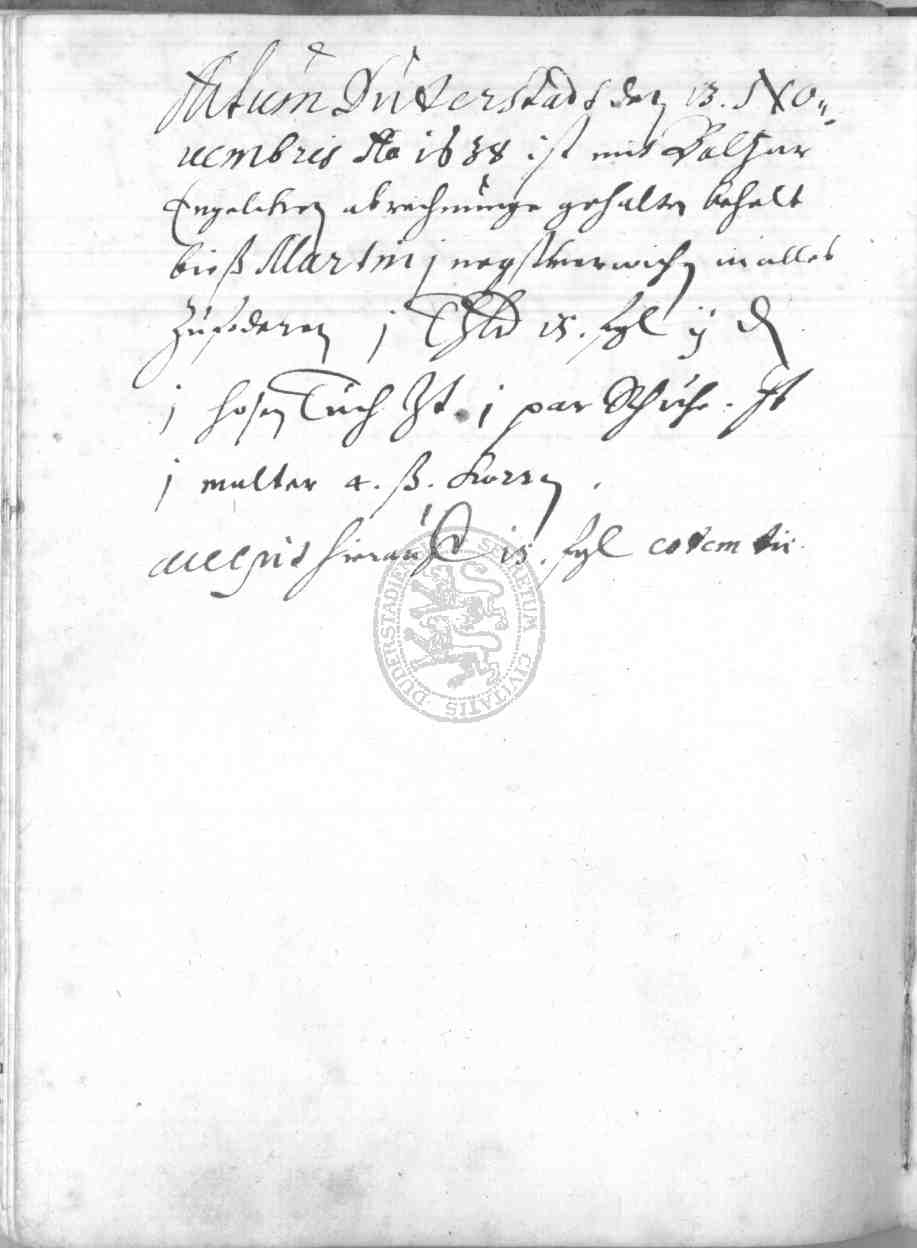 Actum Duderstadt den 13. No-
uembris Ao 1638 ist mit Baltzar
Engelcken abrechnunge gehalten behelt
bieß Martini j negstverwichen in alles
zufoderen j Thlr 15. sgl ij d
j hosen Tuch It. j par Schuhe. It
j malter 4. ß. Korn.
accepit hierauff 15. sgl eodem die
SECRETUM CIVITATIS DUDERSTADIENSIS